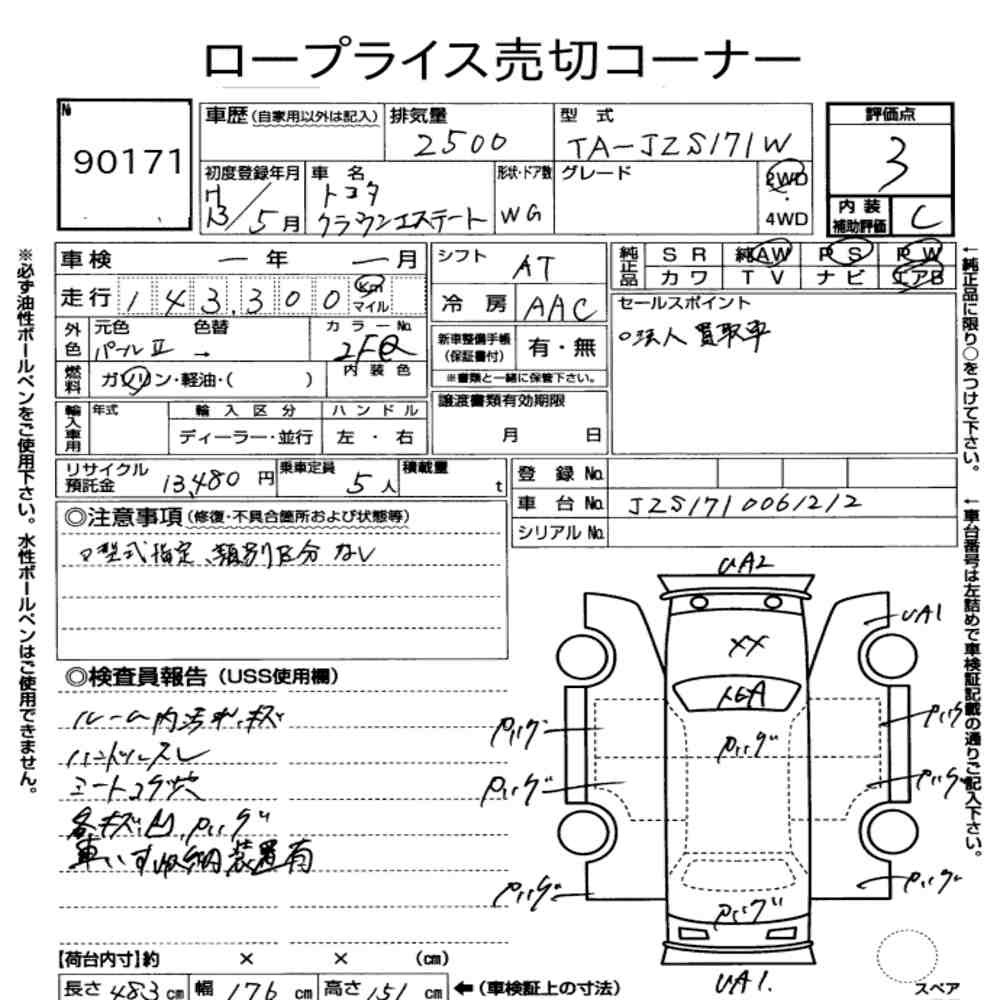 ロープライス売切コーナー
№
90171
車歴(自家用以外は記入)
排気量
2500
型 式
TA-JZS171W
評価点
3
初度登録年月
H
13/5月
車 名
トヨタ
クラウンエステート
形状・ドア数
WG
グレード
2WD
4WD
内 装
補助評価
C
車 検 ー 年 ー 月
走 行 143,300 km
マイル
シフト
AT
冷 房 AAC
純正品
SR 純AW PS PW
カワ TV ナビ エアB
外色
元色 色替
パールⅡ →
カラーNo.
2FQ
内装色
燃料
ガソリン・軽油・( )
新車整備手帳
(保証書付)
有・無
※書類と一緒に保管下さい。
セールスポイント
○法人買取車
輸入車用
年式
輸入区分
ハンドル
ディーラー・並行
左・右
譲渡書類有効期限
月 日
リサイクル
預託金
13,480 円
乗車定員
5人
積載量
t
登 録 No.
車 台 No. JZS1710061212
シリアル No.
◎注意事項(修復・不具合箇所および状態等)
○型式指定、類別区分なし
◎検査員報告(USS使用欄)
ルーム内汚れ、キズ
ハンドルスレ
シートコゲ穴
各キズ凹、P
車いす収納装置有
【荷台内寸】約 × × (cm)
長さ 483 cm 幅 176 cm 高さ 151 cm ←(車検証上の寸法)
UA2
UA1
XX
UA1.
スペア
※必ず油性ボールペンをご使用下さい。水性ボールペンはご使用できません。
←純正品に限り○をつけて下さい。
←車台番号は左詰めで車検証記載の通りご記入下さい。